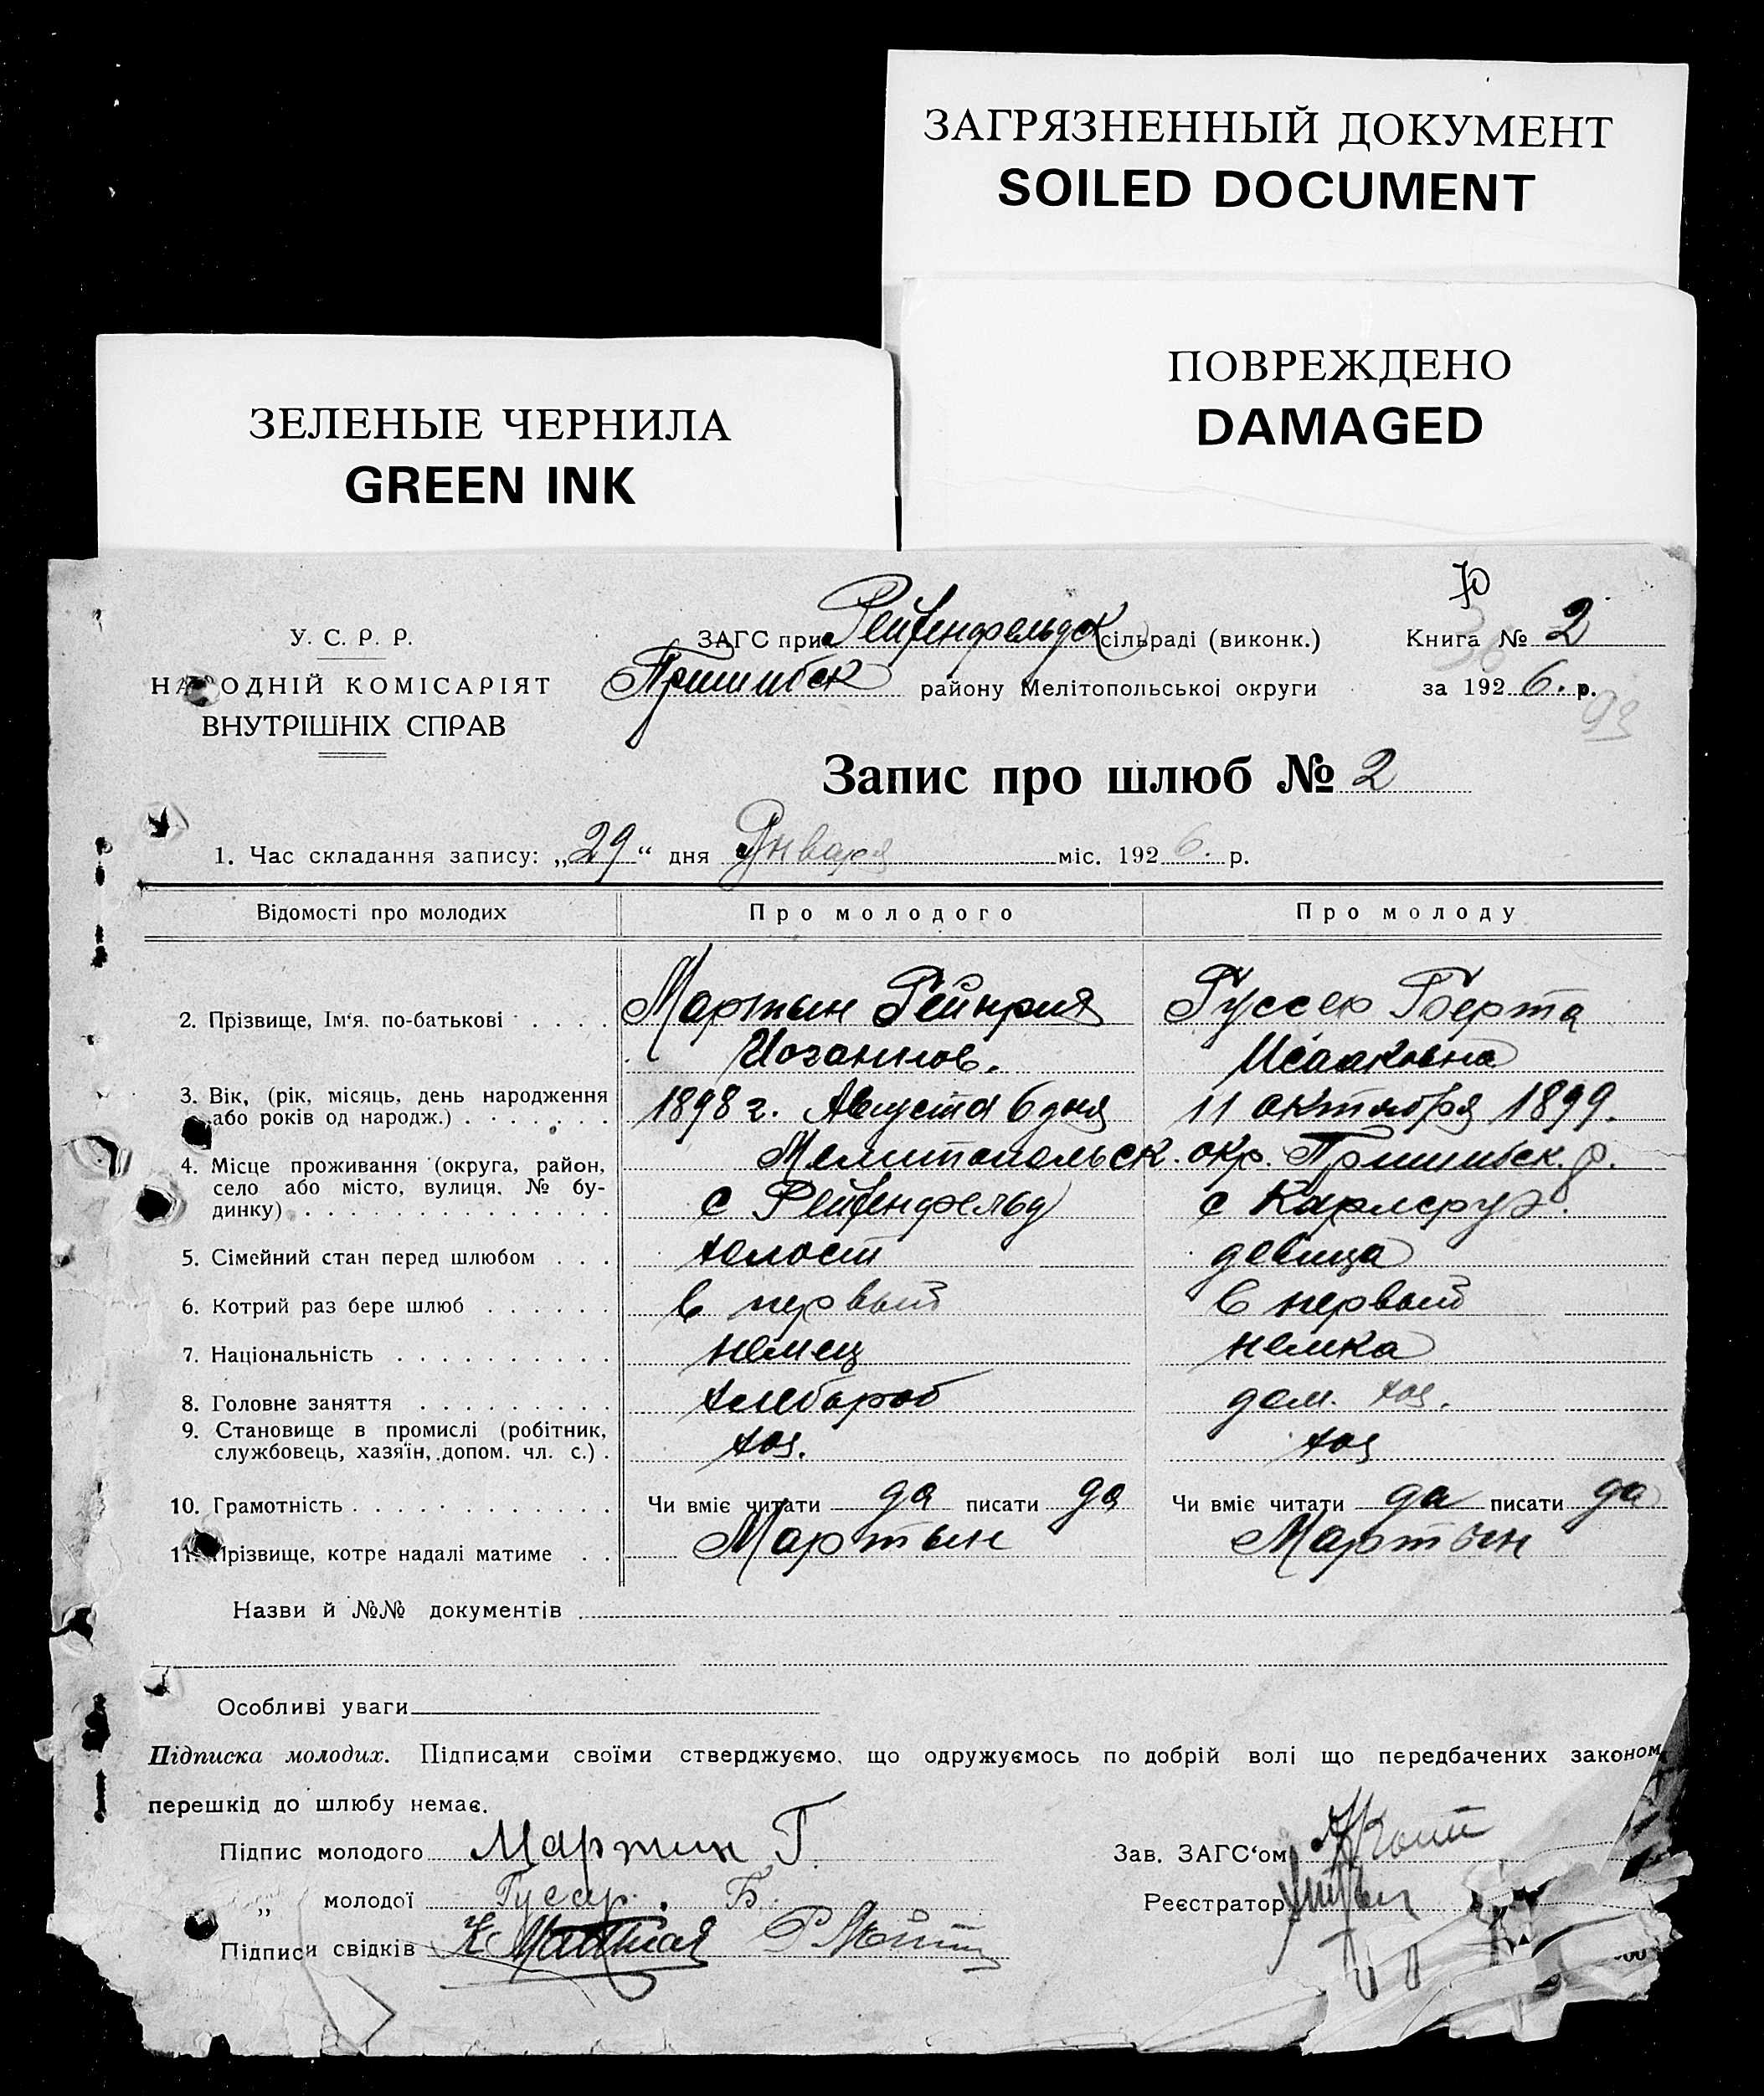 ЗАГРЯЗНЕННЫЙ ДОКУМЕНТ
SOILED DOCUMENT
ПОВРЕЖДЕНО
DAMAGED
ЗЕЛЕНЫЕ ЧЕРНИЛА
GREEN INK
У. С. Р. Р.
НАРОДНІЙ КОМІСАРІЯТ
ВНУТРІШНІХ СПРАВ
ЗАГС при Рейхенфельдск сільраді (виконк.)
Пришибск району Мелітопольської округи
Книга № 2
за 1926. р.
93
Запис про шлюб № 2
1. Час складання запису: „29“ дня Января міс. 1926. р.
Відомості про молодих Про молодого Про молоду
2. Прізвище, Ім'я. по-батькові Мартын Гейнрих Гуссер Берта
Иоганнов. Исааковна
3. Вік, (рік, місяць, день народження
або років од народж.) 1898 г. Августа 6 дня 11 октября 1899.
4. Місце проживання (округа, район,
село або місто, вулиця, № бу-
динку)
Мелитопольск. окр. Пришибск. р.
с Рейхенфельд с Карлсруэ.
5. Сімейний стан перед шлюбом холост девица
6. Котрий раз бере шлюб в первый в первый
7. Національність немец немка
8. Головне заняття хлебороб дом. хоз.
9. Становище в промислі (робітник,
службовець, хазяїн, допом. чл. с.) хоз. хоз
10. Грамотність Чи вміє читати да писати да Чи вміє читати да писати да
11. Прізвище, котре надалі матиме Мартын Мартын
Назви й №№ документів
Особливі уваги
Підписка молодих. Підписами своїми стверджуємо, що одружуємось по добрій волі що передбачених законом
перешкід до шлюбу немає.
Підпис молодого Мартин Г.
„ молодої Гусар. Б.
Підписи свідків
Зав. ЗАГС'ом
Реєстратор